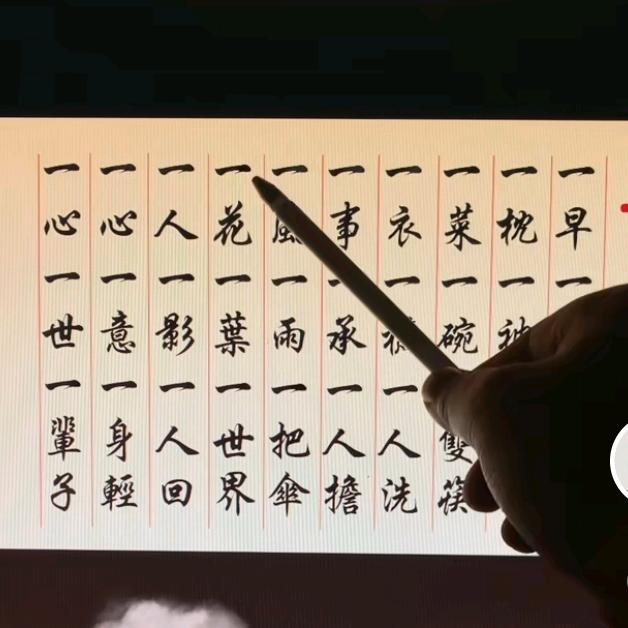 一早一
一枕一
一菜一碗雙筷
一衣一一人洗
一事一承一人擔
一風一雨一把傘
一花一葉一世界
一人一影一人回
一心一意一身輕
一心一世一輩子